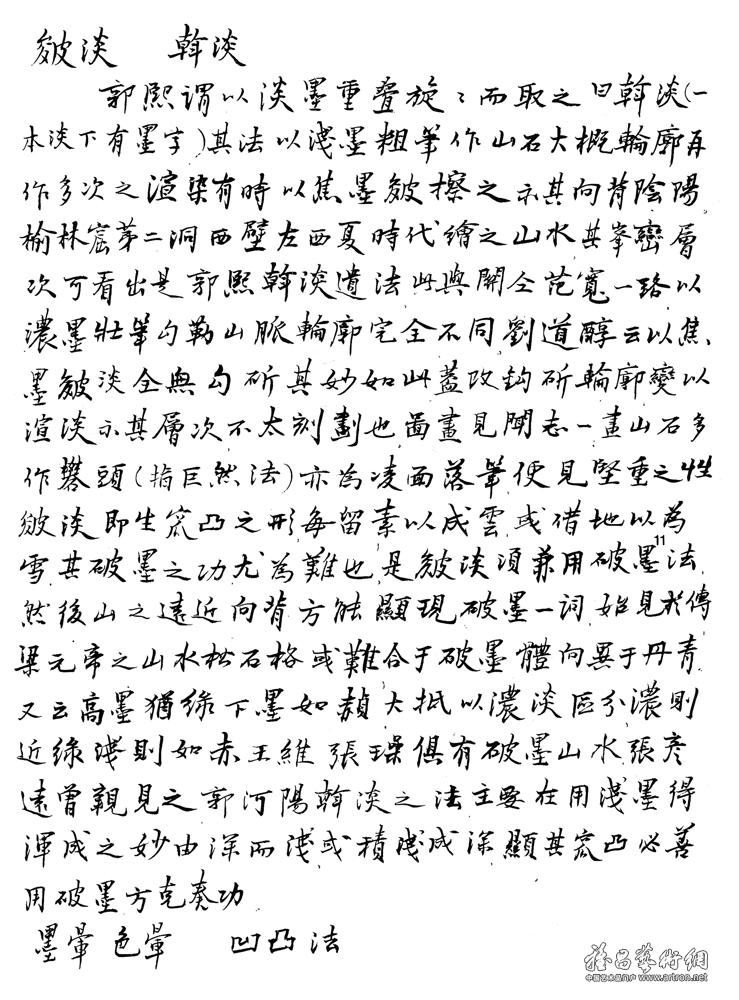 皴淡 斡淡
郭熙謂以淡墨重疊旋〻而取之曰斡淡(一
本淡下有墨字)其法以淺墨粗筆作山石大概輪廓再
作多次之渲染有時以蕉墨皴擦之示其向背陰陽
榆林窟第二洞西壁左西夏時代繪之山水其峯巒層
次可看出是郭熙斡淡遺法此與關仝范寬一路以
濃墨壯筆勾勒山脈輪廓完全不同劉道醇云以焦
墨皴淡全無勾斫其妙如此蓋改鈎斫輪廓變以
渲淡示其層次不太刻劃也圖畫見聞志一畫山石多
作礬頭(指巨然法)亦為凌面落筆便見堅重之性
皴淡即生窊凸之形每留素以成雲或借地以為
雪其破墨之功尤為難也是皴淡須兼用破墨法
11
然後山之遠近向背方能顯現破墨一詞始見於傳
梁元帝之山水松石格或難合于破墨體向異于丹青
又云高墨猶綠下墨如赬大抵以濃淡區分濃則
近綠淺則如赤王維張璪俱有破墨山水張彥
遠曾親見之郭河陽斡淡之法主要在用淺墨得
渾成之妙由深而淺或積淺成深顯其窊凸必善
用破墨方克奏功
墨暈 色暈 凹凸法
雅昌藝術網
中国艺术品门户 www.artron.net